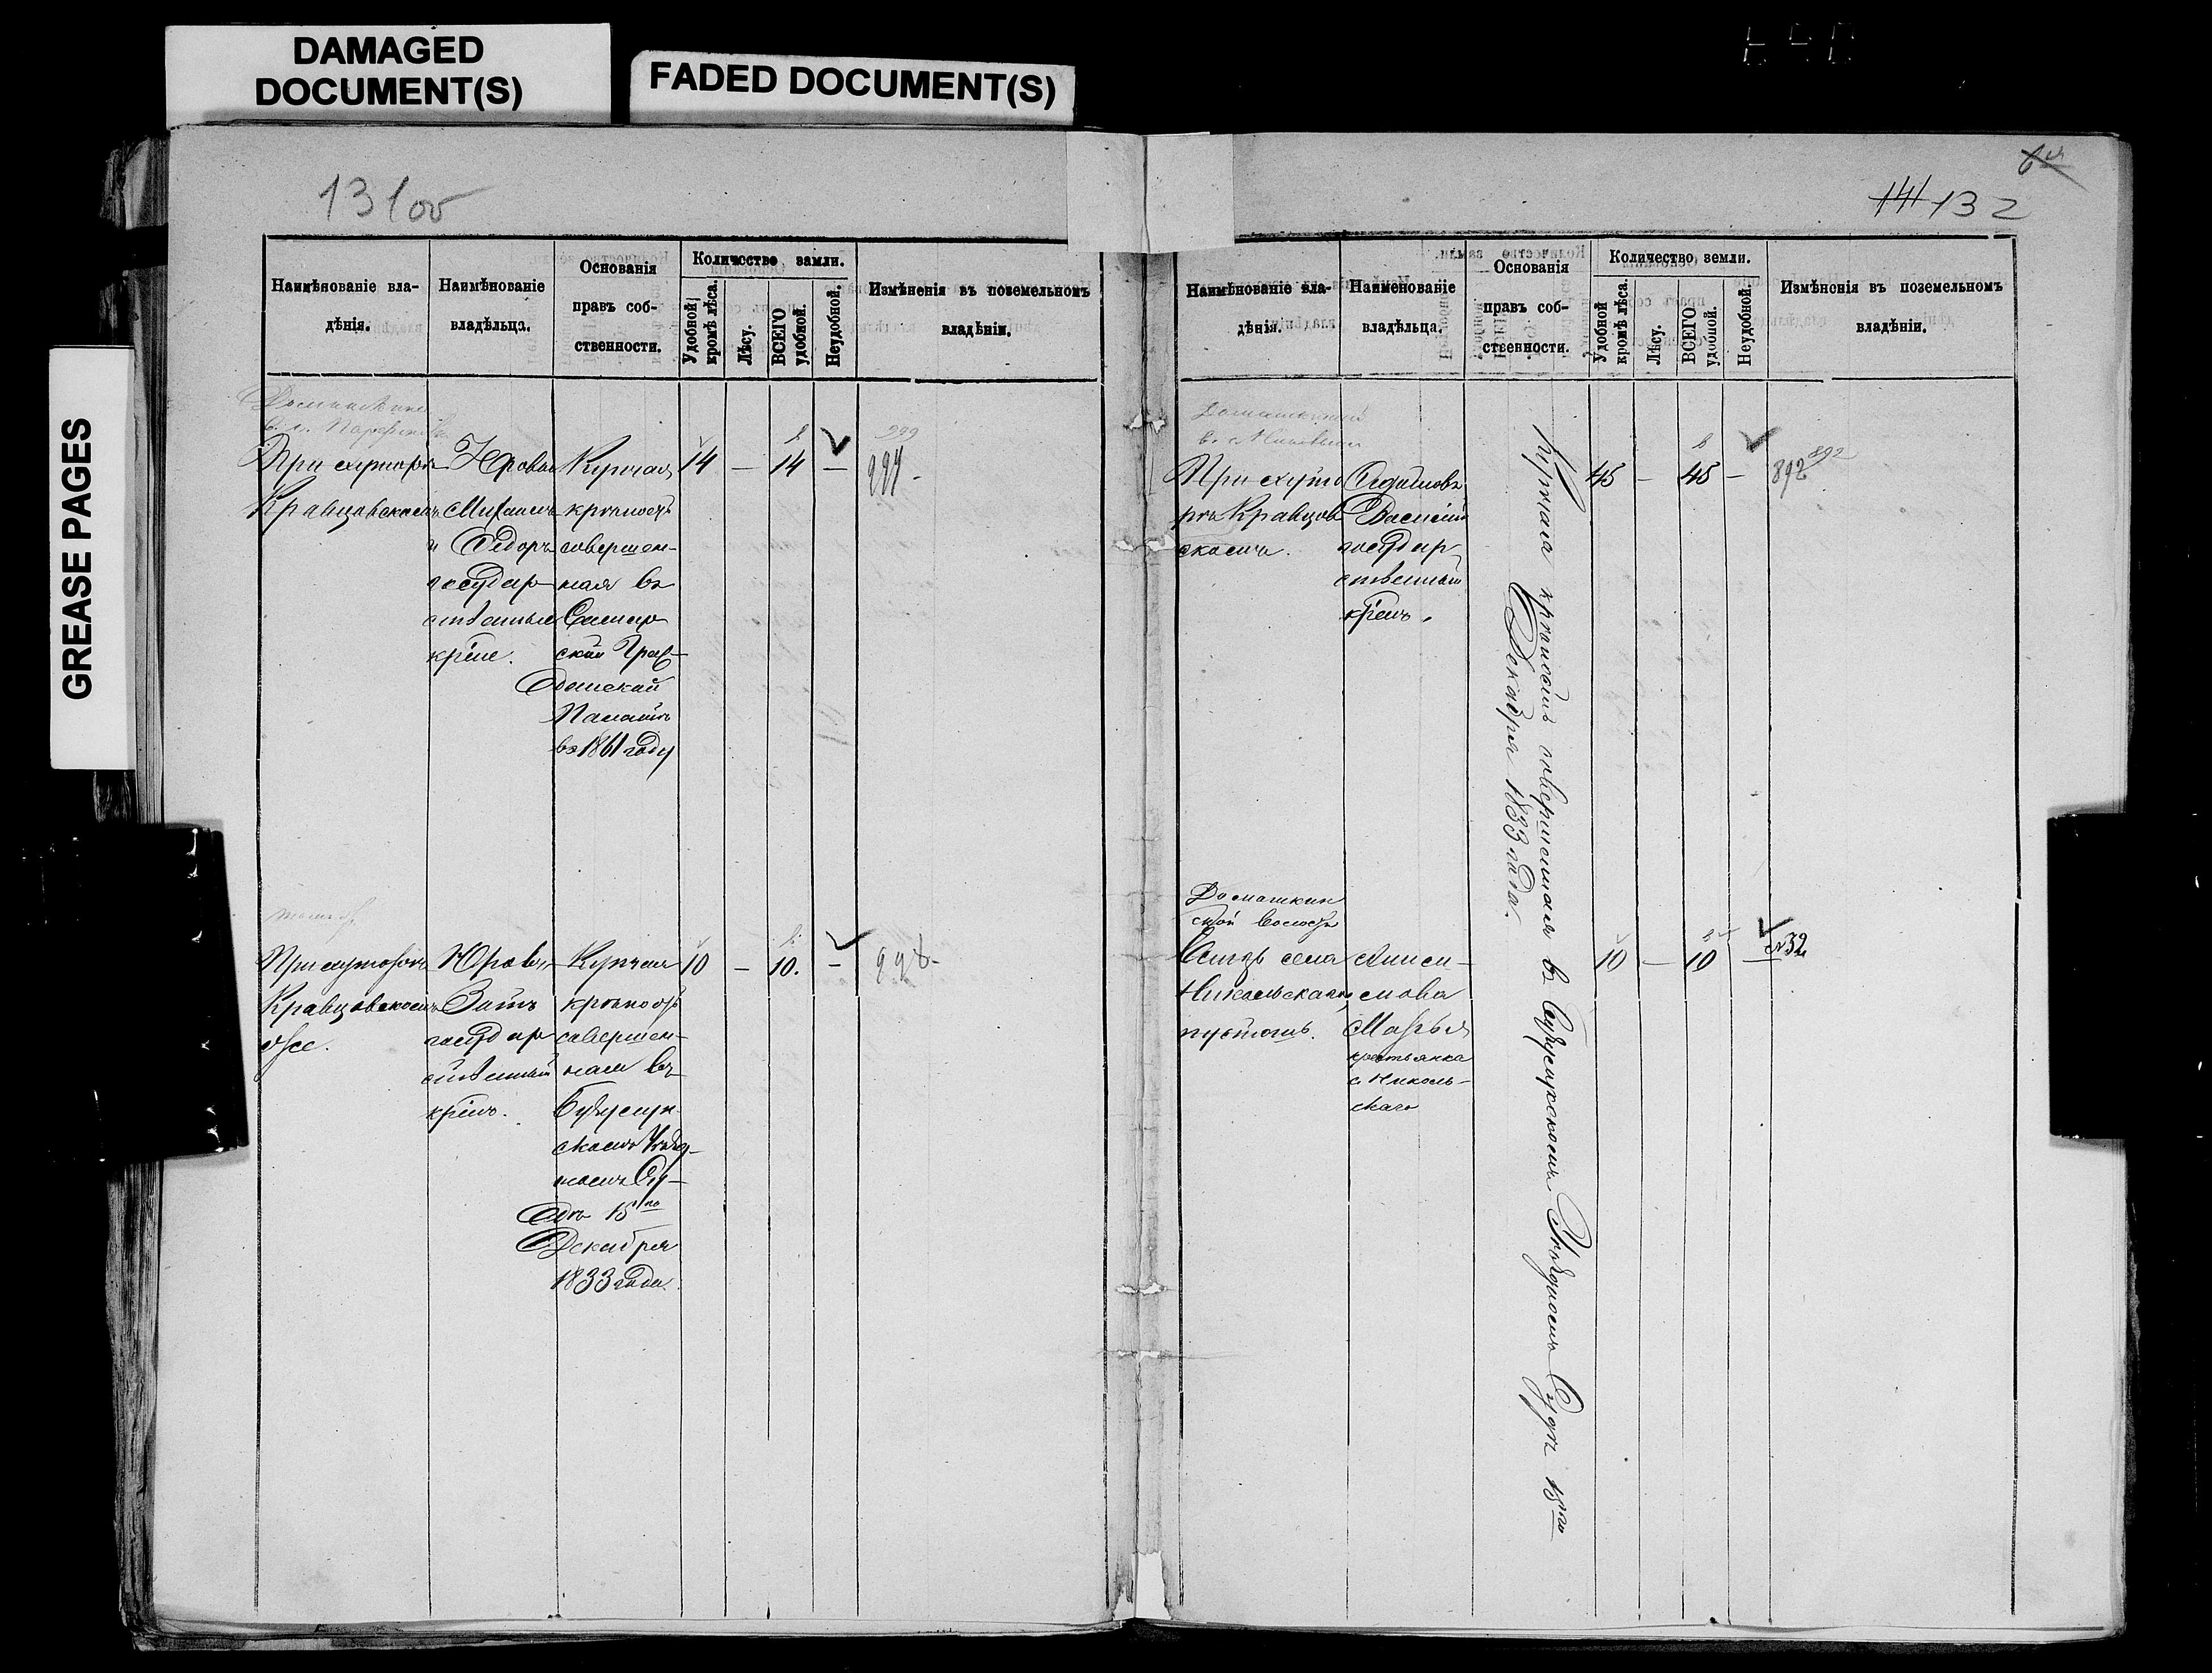 DAMAGED
DOCUMENT(S)
FADED DOCUMENT(S)
GREASE PAGES
131 об
Наимѣнованіе вла-
дѣнія.
Наимѣнованіе
владѣльца.
Основанія
правъ соб-
ственности.
Количество земли.
Удобной
кромѣ лѣса.
Лѣсу.
ВСЕГО
удобной.
Неудобной.
Измѣненія въ поземельномъ
владѣніи.
При хуторѣ
Кравцовскомъ
Юровы
Михаилъ
и Ѳедоръ
государ
ственные
кр̃не.
Купчая
крѣпость
совершен-
ная въ
Самар
ской Граж-
данской
Палатѣ
въ 1861 году
14 — 14 —
999
997 -
При хуторѣ
Кравцовскомъ
Юровъ
государ
ственный
кр̃нъ.
Купчая
крѣпость
совершен-
ная въ
Бузулук
скомъ Уѣзд-
номъ Су-
дѣ 15го
Декабря
1833 года.
10 — 10. —
998-
141 132
Наимѣнованіе вла-
дѣнія.
Наименованіе
владѣльца.
Основанія
правъ соб-
ственности.
Количество земли.
Удобной
кромѣ лѣса.
Лѣсу.
ВСЕГО
удобной.
Неудобной.
Измѣненія въ поземельномъ
владѣніи.
При хуто
рѣ Кравцов
скомъ.
Василій
государ
ственный
кр̃нъ.
Купчая крѣпость совершенная въ Бузулукскомъ Уѣздномъ Судѣ 15го
Декабря 1833 года.
45 — 45 —
892 892
Домашкин
ской волости
Близъ села
Никольскаго
пустошь.
Аниси-
мова
Марья
крестьянка
с. Николь-
скаго
10 — 10
32